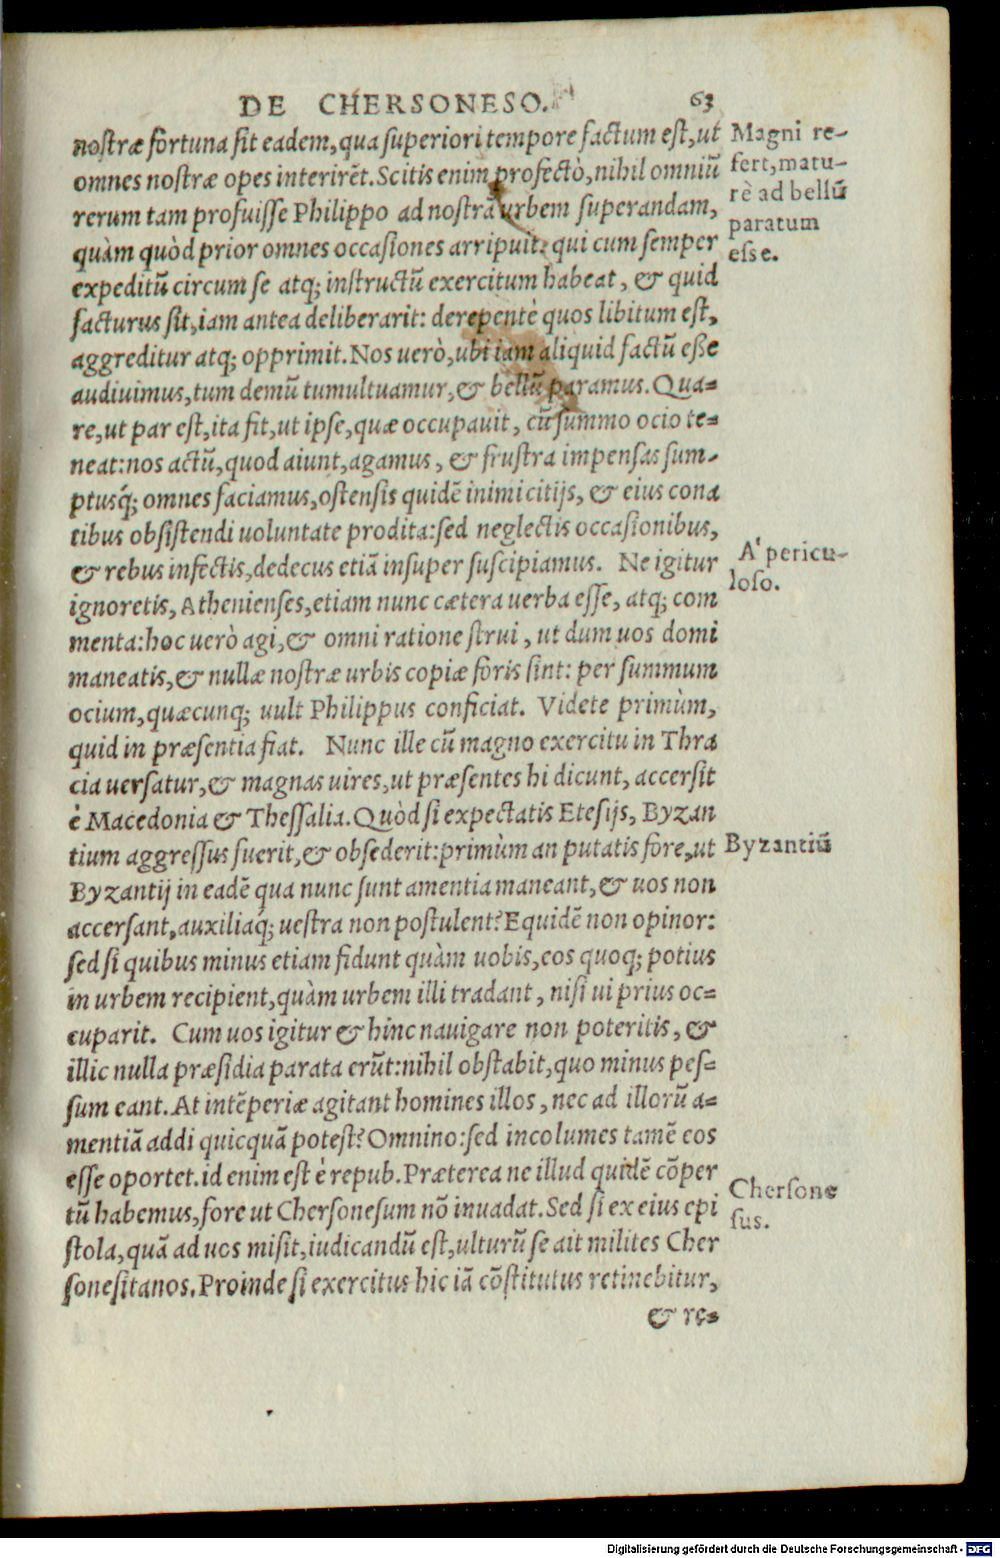 DE CHERSONESO. 63
nostræ fortuna sit eadem, qua superiori tempore factum est, ut
omnes nostræ opes interirẽt. Scitis enim profectò, nihil omniũ
rerum tam profuisse Philippo ad nostrã urbem superandam,
quàm quòd prior omnes occasiones arripuit: qui cum semper
expeditũ circum se atq; instructũ exercitum habeat, & quid
facturus sit, iam antea deliberarit: derepentè quos libitum est,
aggreditur atq; opprimit. Nos uerò, ubi iam aliquid factũ esse
audiuimus, tum demũ tumultuamur, & bellũ paramus. Qua=
re, ut par est, ita fit, ut ipse, quæ occupauit, cũ summo ocio te=
neat: nos actũ, quod aiunt, agamus, & frustra impensas sum-
ptusq́; omnes faciamus, ostensis quidẽ inimicitijs, & eius cona
tibus obsistendi uoluntate prodita: sed neglectis occasionibus,
& rebus infectis, dedecus etiã insuper suscipiamus. Ne igitur
ignoretis, Athenienses, etiam nunc cætera uerba esse, atq; com
menta: hoc uerò agi, & omni ratione strui, ut dum uos domi
maneatis, & nullæ nostræ urbis copiæ foris sint: per summum
ocium, quæcunq; uult Philippus conficiat. Videte primùm,
quid in præsentia fiat. Nunc ille cũ magno exercitu in Thra
cia uersatur, & magnas uires, ut præsentes hi dicunt, accersit
è Macedonia & Thessalia. Quòd si expectatis Etesijs, Byzan
tium aggressus fuerit, & obsederit: primùm an putatis fore, ut
Byzantij in eadẽ qua nunc sunt amentia maneant, & uos non
accersant, auxiliaq́; uestra non postulent? Equidẽ non opinor:
sed si quibus minus etiam fidunt quàm uobis, eos quoq; potius
in urbem recipient, quàm urbem illi tradant, nisi ui prius oc=
cuparit. Cum uos igitur & hinc nauigare non poteritis, &
illic nulla præsidia parata erũt: nihil obstabit, quo minus pes=
sum eant. At intẽperiæ agitant homines illos, nec ad illorũ a=
mentiã addi quicquã potest? Omnino: sed incolumes tamẽ eos
esse oportet. id enim est è repub. Præterea ne illud quidẽ cõper
tũ habemus, fore ut Chersonesum nõ inuadat. Sed si ex eius epi
stola, quã ad uos misit, iudicandũ est, ulturũ se ait milites Cher
sonesitanos. Proinde si exercitus hic iã cõstitutus retinebitur,
& re=
Magni re-
fert, matu-
rè ad bellũ
paratum
esse.
A' pericu-
loso.
Byzantiũ
Chersone
sus.
Digitalisierung gefördert durch die Deutsche Forschungsgemeinschaft - DFG